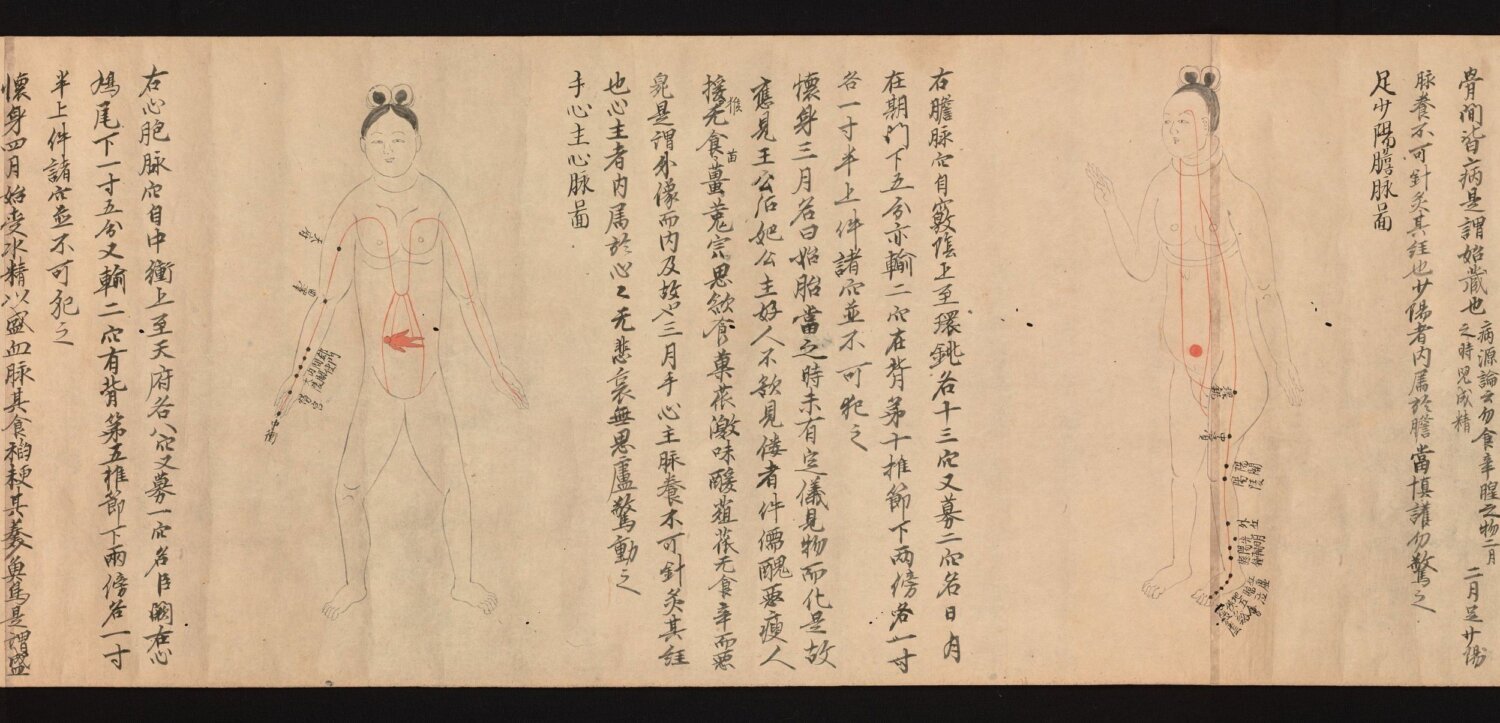 骨間皆病是謂始藏也
病源論云勿食辛腥之物二月
之時児成精
二月足少陽
脉養不可針灸其経也少陽者内属於膽當慎護勿驚之
足少陽膽脉啚
陽関
陽陵
外丘
光明
右膽脉穴自竅陰上至環銚各十三穴又募二穴名日月
在期門下五分亦輸二穴在背第十椎節下兩傍各一寸
各一寸半上件諸穴並不可犯之
懐身三月名曰始胎當之時未有定儀見物而化是故
應見王公后妃公主好人不欲見僂者件儒醜惡瘦人
猨猴无食苗薑菟宍思欲食菓蓏激味酸葅蓏无食辛而惡
臭是謂外像而内及故也三月手心主脉養不可針灸其経
也心主者内属於心〻无悲哀無思慮驚動之
手心主心脉啚
天府
曲澤
郄門
間使
内関
大陵
勞宮
中衝
右心胞脉穴自中衝上至天府各八穴又募一穴名巨闕在心
鳩尾下一寸五分又輸二穴有背第五椎節下兩傍各一寸
半上件諸穴並不可犯之
懐身四月始受水精以盛血脉其食稻粳其羹魚鴈是謂盛